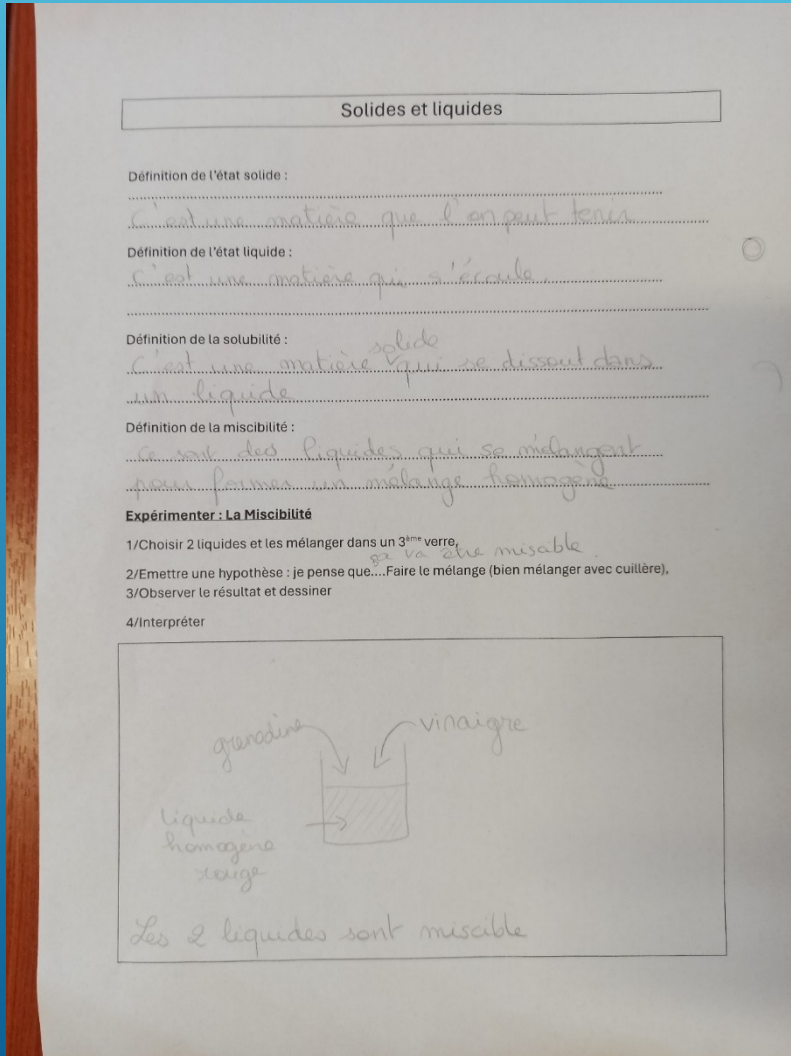 Solides et liquides
Définition de l'état solide :
C'est une matière que l'on peut tenir
Définition de l'état liquide :
C'est une matière qui s'écoule.
Définition de la solubilité :
solide
C'est une matière qui se dissout dans
un liquide
Définition de la miscibilité :
Ce sont des liquides qui se mélangent
pour former un mélange homogène
Expérimenter : La Miscibilité
1/Choisir 2 liquides et les mélanger dans un 3ème verre,
ça va être misable.
2/Emettre une hypothèse : je pense que....Faire le mélange (bien mélanger avec cuillère),
3/Observer le résultat et dessiner
4/Interpréter
grenadine
vinaigre
liquide
homogène
rouge
Les 2 liquides sont miscible